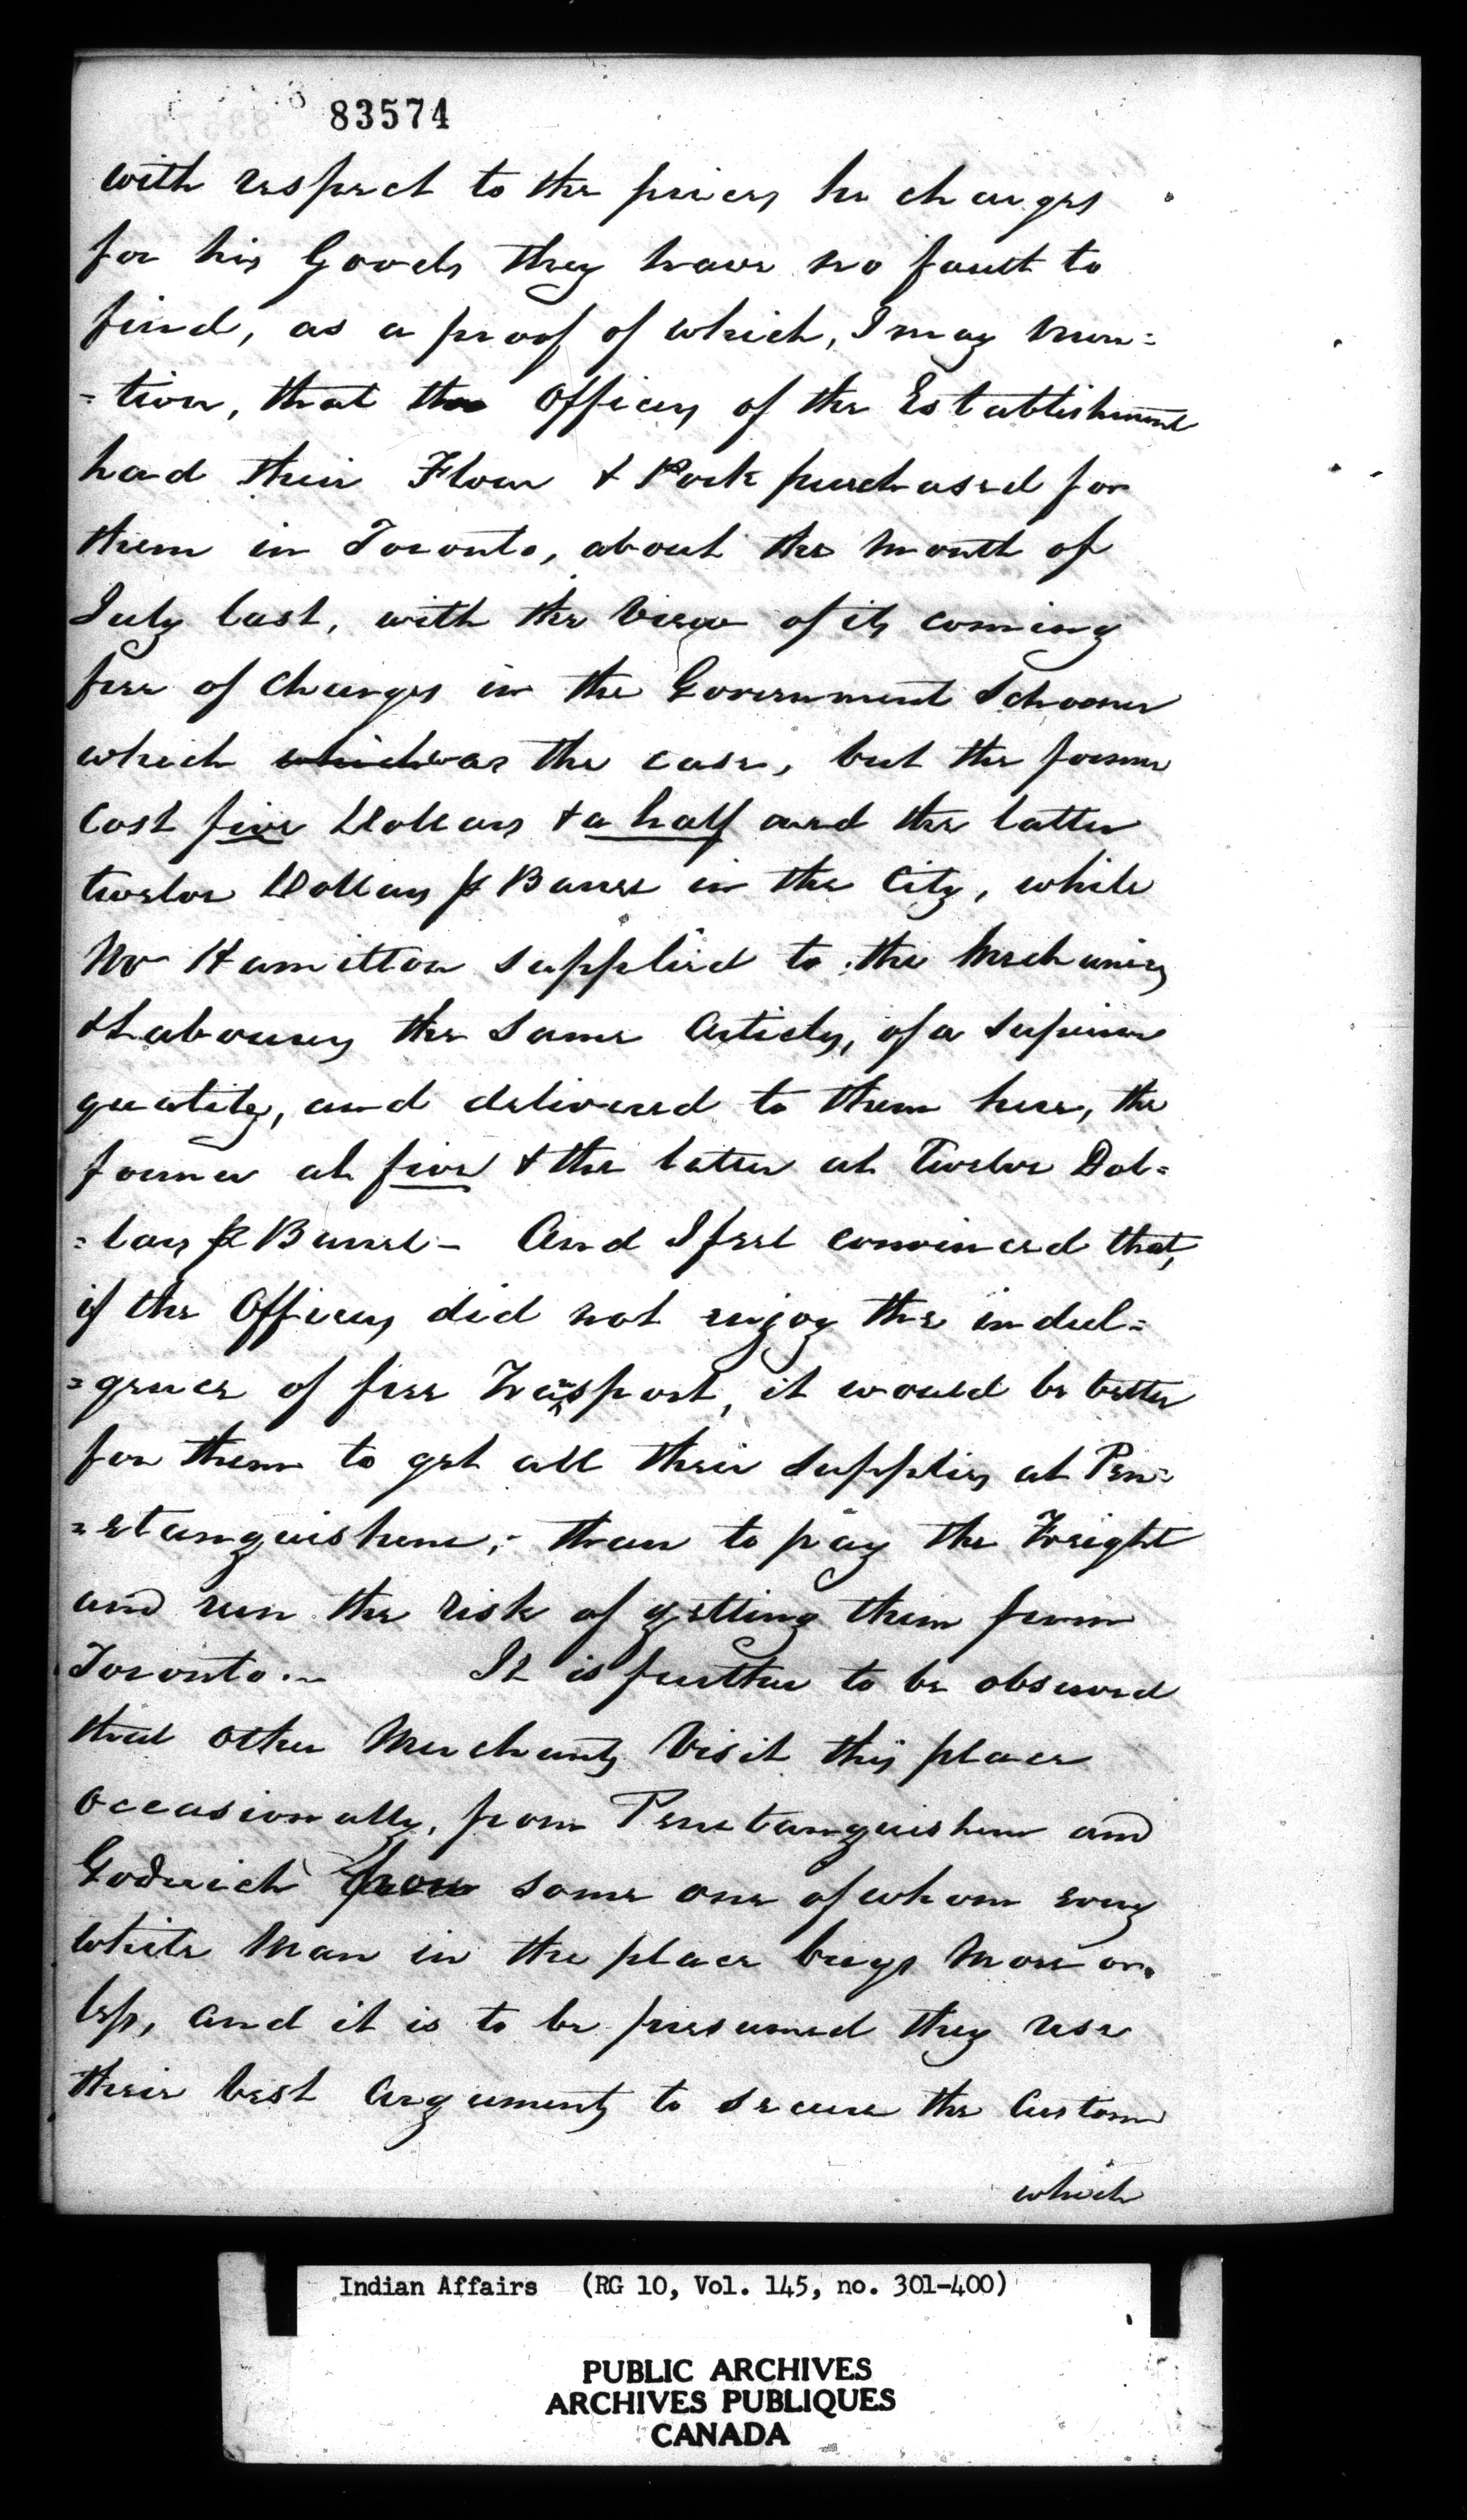 83574
with respect to the prices he charges
for his Goods they have no fault to
find, as a proof of which, I may men=
=tion, that the Officers of the Establishment
had their Flour & Pork purchased for
them in Toronto, about the month of
July last, with the view of its coming
free of charges in the Government Schooner
which which was the case, but the former
Cost five Dollars & a half and the latter
twelve Dollars p Barrel in the City, while
Mr Hamilton supplied to the Mechanics
& Labourers the same Articles, of a superior
quality, and delivered to them here, the
former at five & the latter at Twelve Dol=
=lars p Barrel - And I feel convinced that,
if the Officers did not enjoy the indul=
=gence of free Transport, it would be better
for them to get all their supplies at Pen=
=etanguishene, than to pay the Freight
and run the risk of getting them from
Toronto. It is further to be observed
that other Merchants visit this place
occasionally, from Penetanguishene and
Goderich from some one of whom every
white Man in the place buys more or
less, and it is to be presumed they use
their best arguments to secure the Custom
which
Indian Affairs (RG 10, Vol. 145, no. 301-400)
PUBLIC ARCHIVES
ARCHIVES PUBLIQUES
CANADA